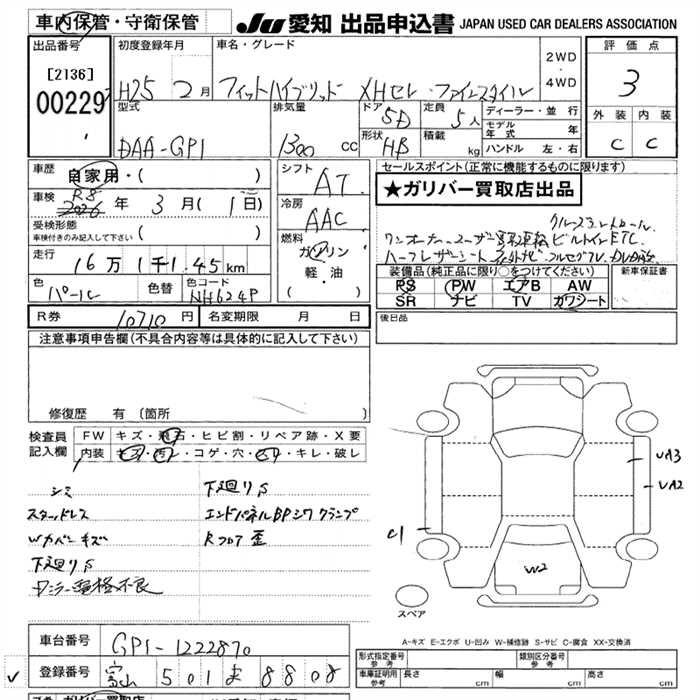 車内保管・守衛保管
JU 愛知 出品申込書 JAPAN USED CAR DEALERS ASSOCIATION
出品番号
[2136]
00229
初度登録年月
H25 2月
車名・グレード
フィットハイブリッド XHセレ・ファインスタイル
2WD
4WD
評価点
3
外装 内装
C C
型式
DAA-GP1
排気量
1300 cc
ドア
5D
定員
5人
形状
HB
積載
kg
ディーラー・並行
モデル年式 年
ハンドル 左・右
車歴
自家用・( )
車検
R8
2026年 3月(1日)
受検形態
車検付きのみ記入して下さい ( )
走行
16万1千145km
色
パール
色替
色コード
NH624P
シフト
AT
冷房
AAC
燃料
ガソリン
軽・油
( )
セールスポイント(正常に機能するものに限ります)
★ガリバー買取店出品
クルーズコントロール
ワンオーナーユーザー買取車輌 ビルトインETC
ハーフレザーシート 社外ナビ フルセグTV
装備品(純正品に限り○をつけてください)
PS PW エアB AW
SR ナビ TV カワシート
新車保証書
後日品
R券 10710円 名変期限 月 日
注意事項申告欄(不具合内容等は具体的に記入して下さい)
修復歴 有(箇所
検査員
記入欄
FW キズ・飛石・ヒビ割・リペア跡・X要
内装 キズ・汚れ・コゲ・穴・スリ・キレ・破レ
シミ
スタッドレス
Wカバーキズ
下廻りS
下廻りS
エンドパネルBPシワ クランプ
Rフロア歪
C1
UA3
UA2
W2
スペア
A-キズ E-エクボ U-凹み W-補修跡 S-サビ C-腐食 XX-交換済
車台番号 GP1-1222870
登録番号 富山 501 ま 8808
形式指定番号
参考
類別区分番号
参考
車庫証明用
参考
長さ cm 幅 cm 高さ cm
ガリバー買取店